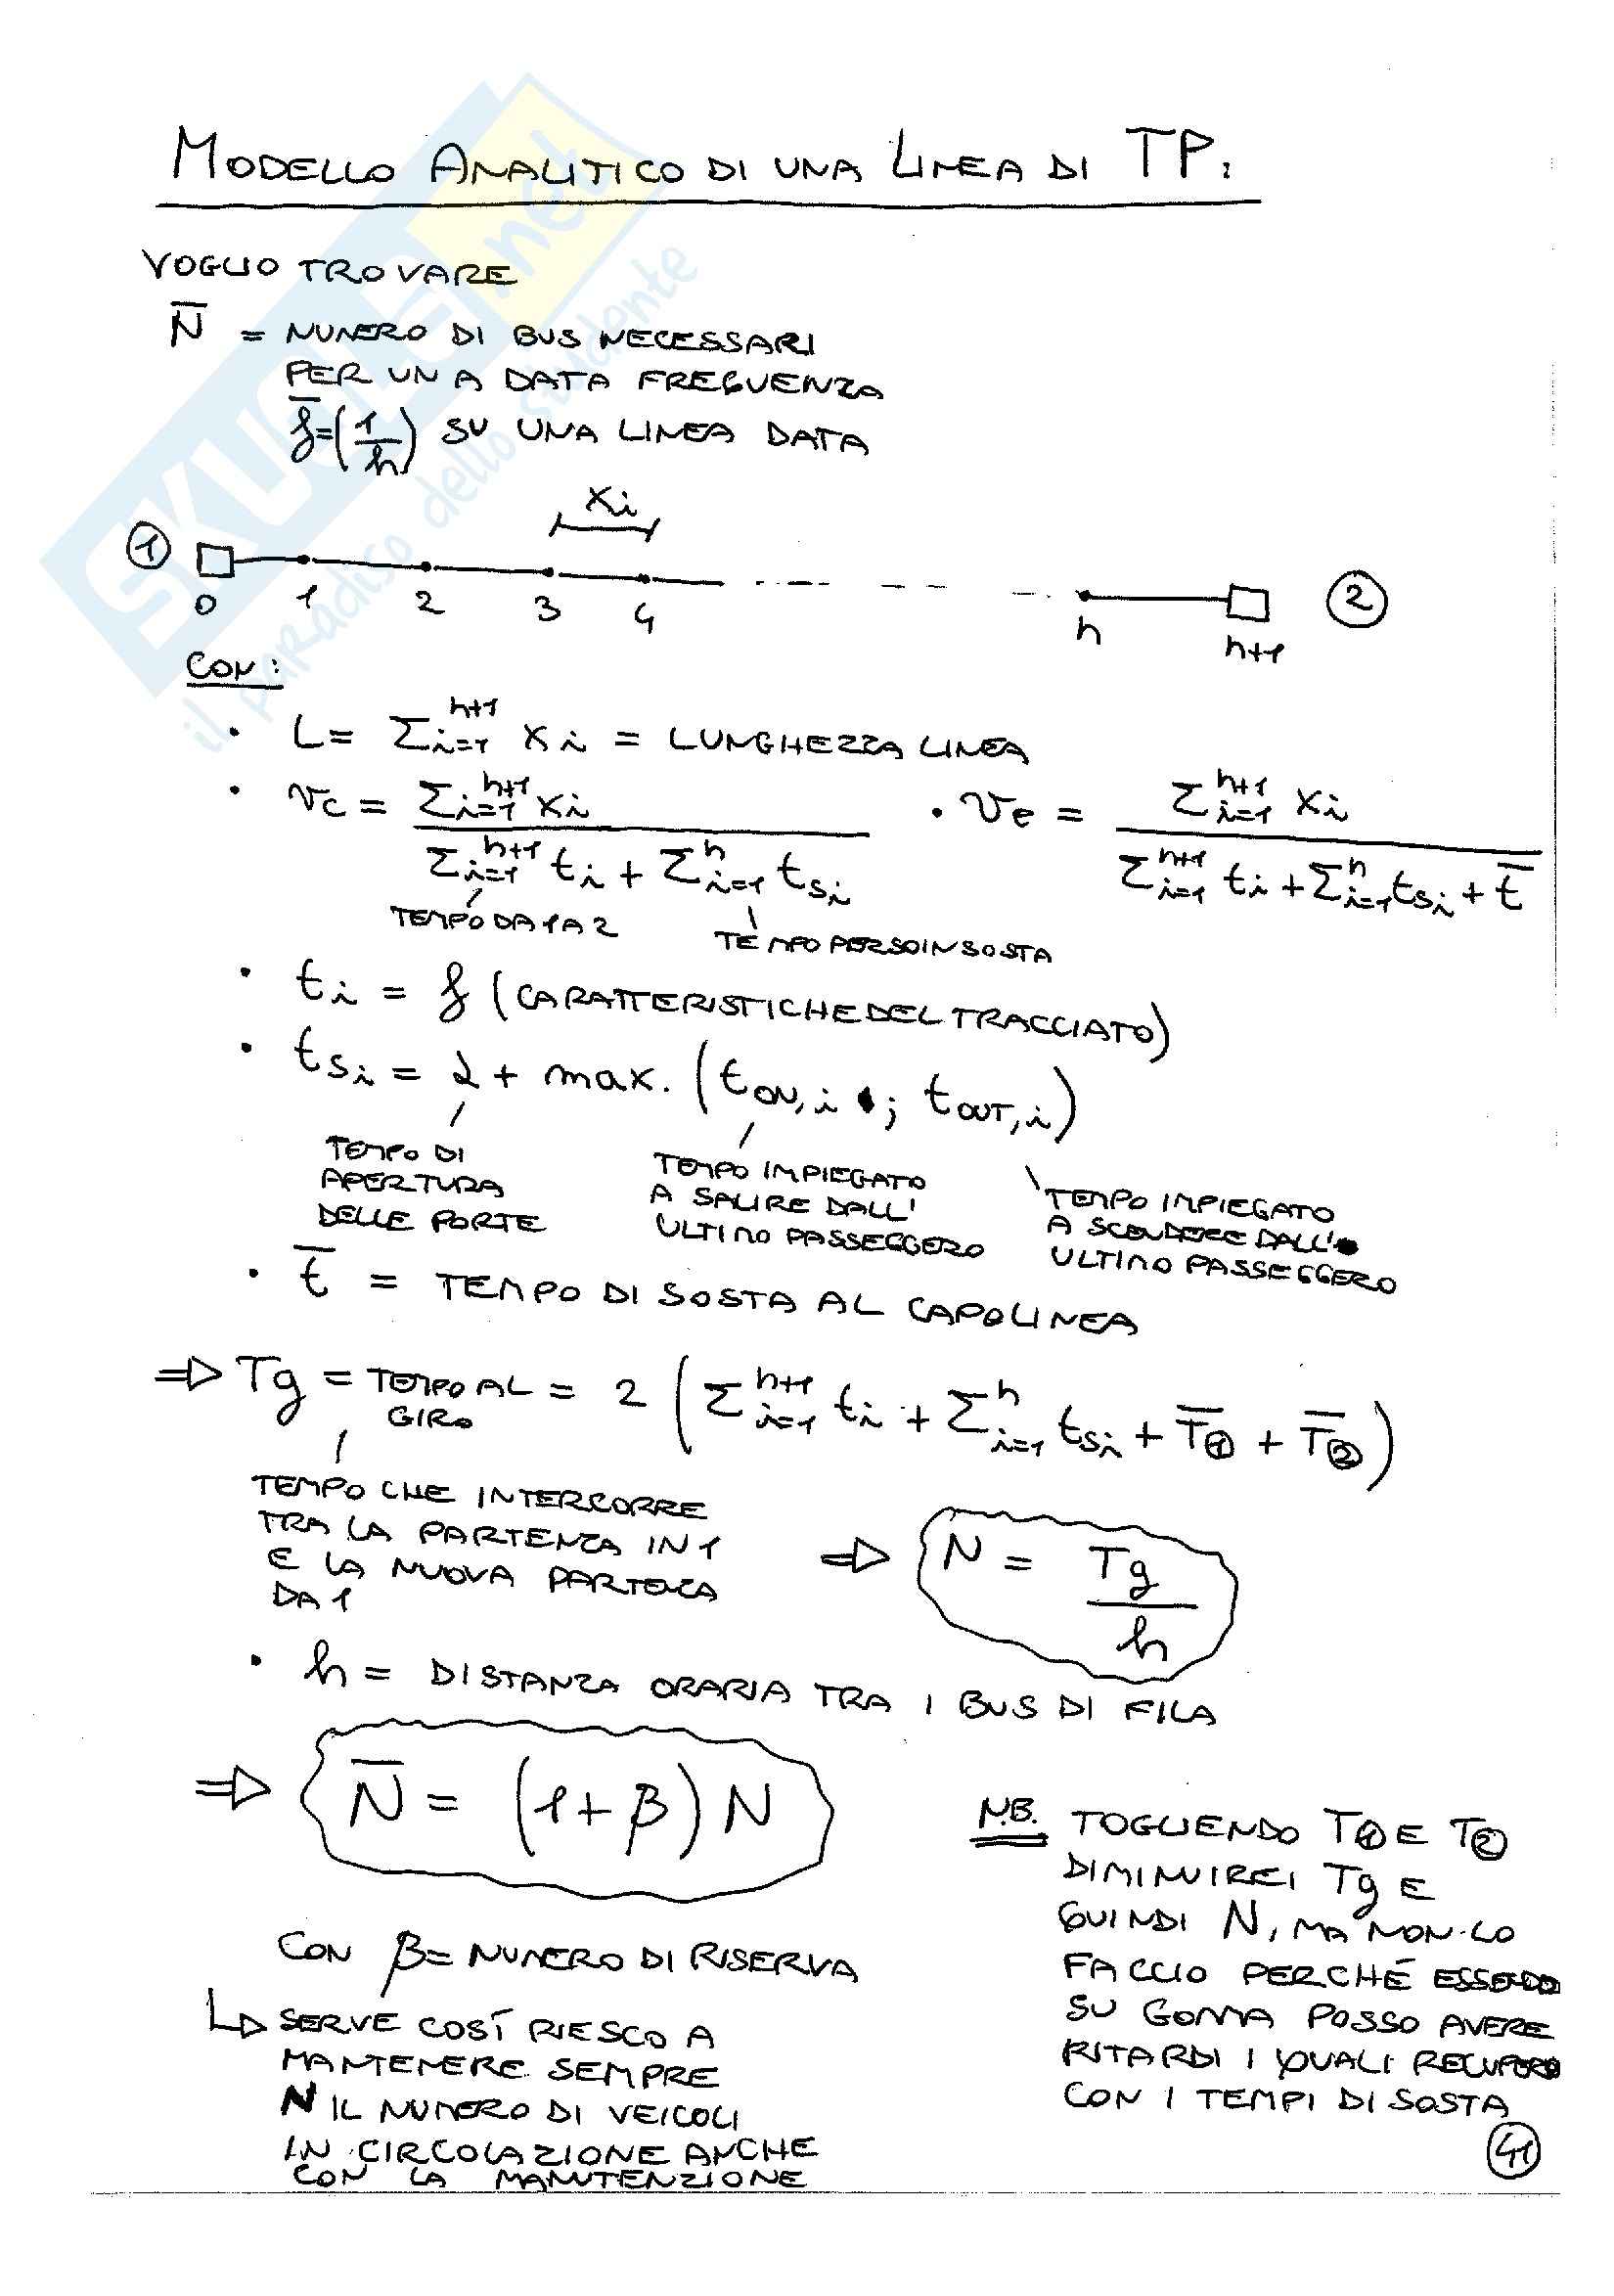 MODELLO ANALITICO DI UNA LINEA DI TP:
VOGLIO TROVARE
N̅ = NUMERO DI BUS NECESSARI
PER UNA DATA FREQUENZA
f̅=(1/h) SU UNA LINEA DATA
xi
① ②
0 1 2 3 4 n n+1
CON:
• L = Σi=1^n+1 xi = LUNGHEZZA LINEA
• vc = Σi=1^n+1 xi / (Σi=1^n+1 ti + Σi=1^n tsi) • ve = Σi=1^n+1 xi / (Σi=1^n+1 ti + Σi=1^n tsi + t̅)
TEMPO DA 1 A 2 TEMPO PERSO IN SOSTA
• ti = f (CARATTERISTICHE DEL TRACCIATO)
• tsi = 2 + max. (tON,i ; tOUT,i)
TEMPO DI
APERTURA
DELLE PORTE
TEMPO IMPIEGATO
A SALIRE DALL'
ULTIMO PASSEGGERO
TEMPO IMPIEGATO
A SCENDERE DALL'
ULTIMO PASSEGGERO
• t̅ = TEMPO DI SOSTA AL CAPOLINEA
⇒ Tg = TEMPO AL GIRO = 2 (Σi=1^n+1 ti + Σi=1^n tsi + T̅① + T̅②)
TEMPO CHE INTERCORRE
TRA LA PARTENZA IN 1
E LA NUOVA PARTENZA
DA 1
⇒ N = Tg / h
• h = DISTANZA ORARIA TRA I BUS DI FILA
⇒ N̅ = (1+β) N
CON β = NUMERO DI RISERVA
↳ SERVE COSÌ RIESCO A
MANTENERE SEMPRE
N IL NUMERO DI VEICOLI
IN CIRCOLAZIONE ANCHE
CON LA MANUTENZIONE
N.B. TOGLIENDO T① E T②
DIMINUIREI Tg E
QUINDI N, MA NON LO
FACCIO PERCHÉ ESSENDO
SU GOMMA POSSO AVERE
RITARDI I QUALI RECUPERO
CON I TEMPI DI SOSTA
41
SKUOLA.net
il paradiso dello studente